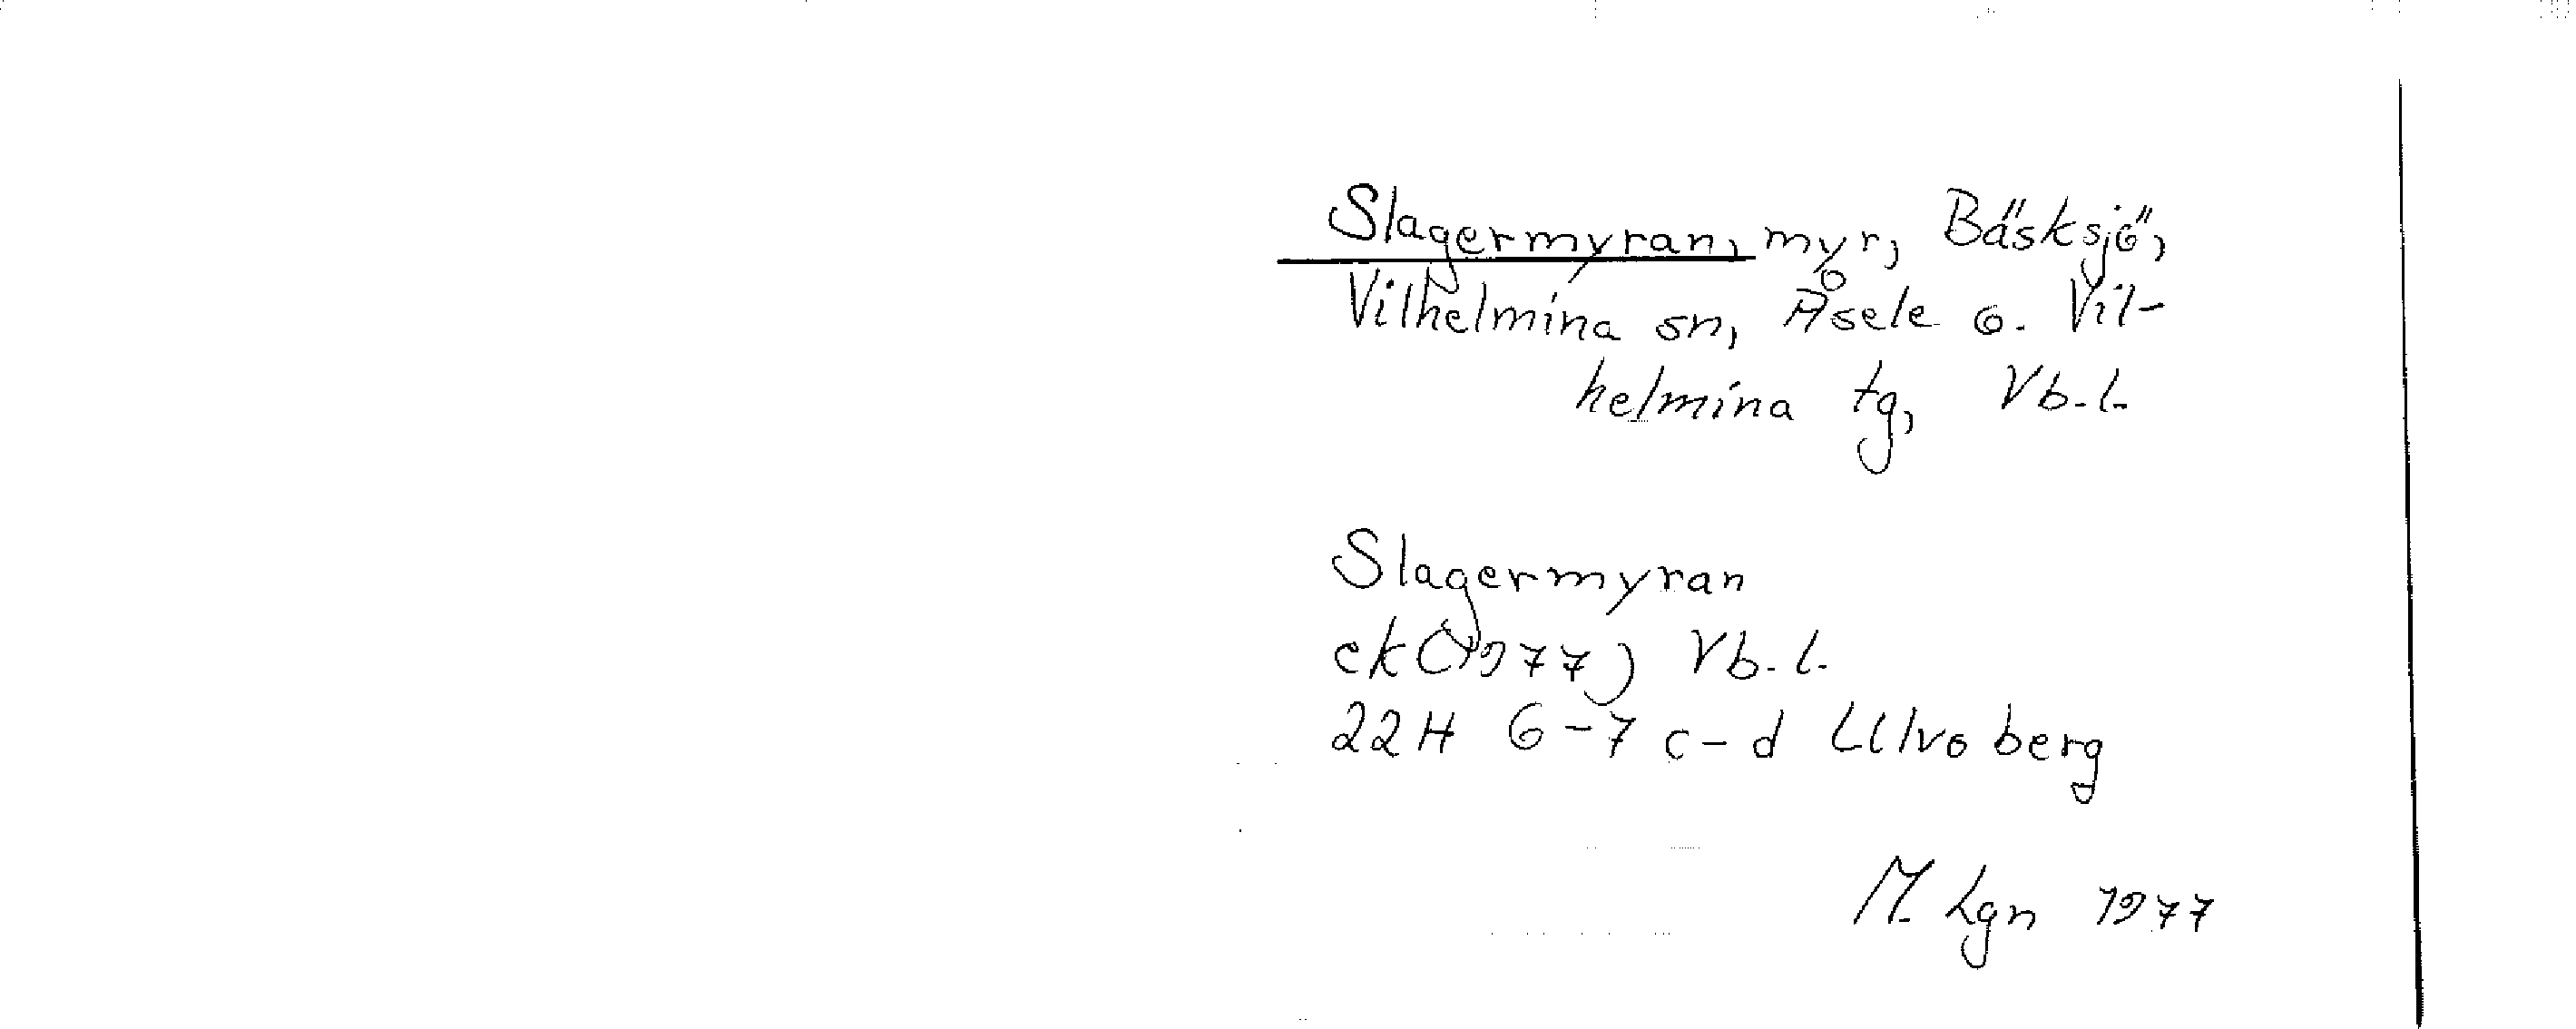 Slagermyran, myr, Bäsksjö,
Vilhelmina sn, Åsele o. Vil-
helmina tg, Vb. l.
Slagermyran
ek (1977) Vb. l.
22H 6-7 c-d Ulvoberg
M. Lgn 1977